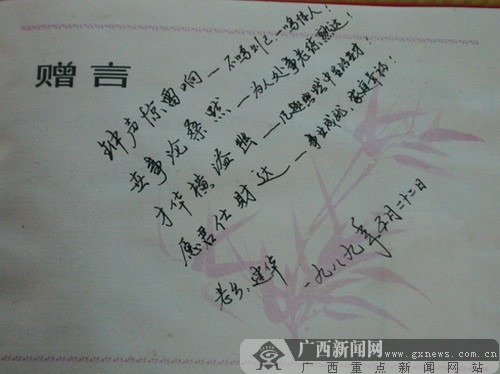 赠言
钟声惊雷响——不鸣则已一鸣惊人!
世事沧桑默——为人处事老练熟达!
才华横溢幽——
愿君仕财达——事业成就,家庭幸福!
建华
一九八九年五月二十二日
广西新闻网
www.gxnews.com.cn
广西重点新闻网站